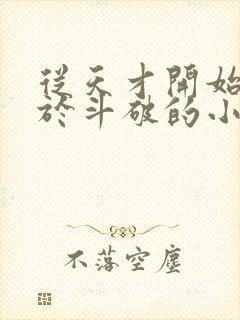 從天才開始
於斗破的小
不落空塵